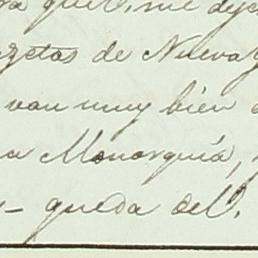 que V. me dej
gzetas de Nueva
van muy bien
a Monarquía,
queda de V.